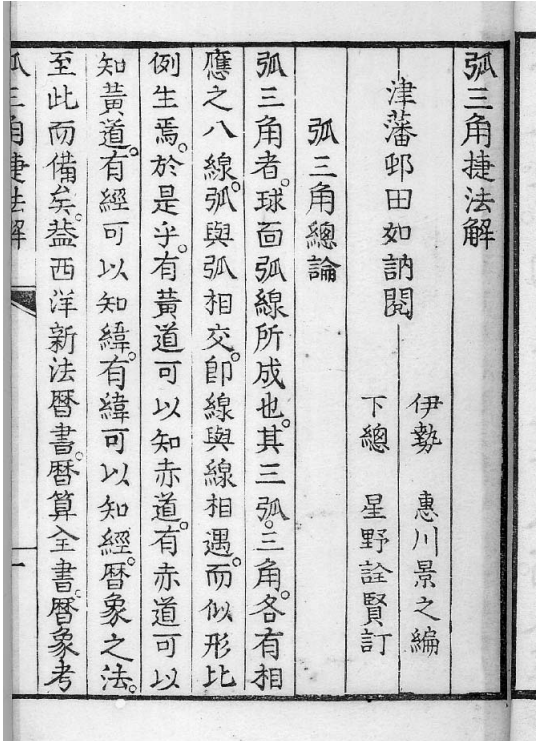 弧三角捷法解
津藩 邨田如訥閱
伊勢 惠川景之編
下總 星野詮賢訂
弧三角總論
弧三角者。球面弧線所成也。其三弧。三角。各有相
應之八線。弧與弧相交。卽線與線相遇。而似形比
例生焉。於是乎。有黃道可以知赤道。有赤道可以
知黃道。有經可以知緯。有緯可以知經。曆象之法。
至此而備矣。蓋西洋新法曆書。曆算全書。曆象考
弧三角捷法解
一